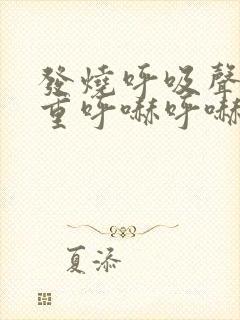 發燒呼吸聲
重呼嚇呼嚇
夏添